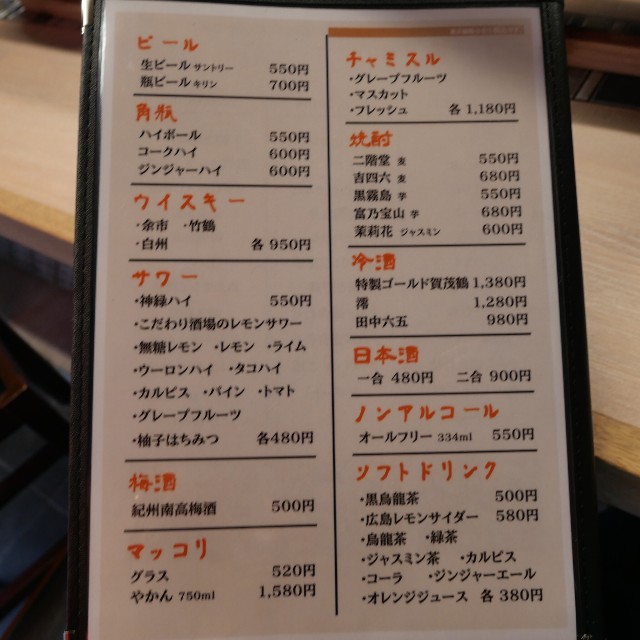 ビール
生ビール サントリー 550円
瓶ビール キリン 700円
角瓶
ハイボール 550円
コークハイ 600円
ジンジャーハイ 600円
ウイスキー
・余市 ・竹鶴
・白州 各 950円
サワー
・神緑ハイ 550円
・こだわり酒場のレモンサワー
・無糖レモン ・レモン ・ライム
・ウーロンハイ ・タコハイ
・カルピス ・パイン ・トマト
・グレープフルーツ
・柚子はちみつ 各480円
梅酒
紀州南高梅酒 500円
マッコリ
グラス 520円
やかん 750ml 1,580円
チャミスル
・グレープフルーツ
・マスカット
・フレッシュ 各 1,180円
焼酎
二階堂 麦 550円
吉四六 麦 680円
黒霧島 芋 550円
富乃宝山 芋 680円
茉莉花 ジャスミン 600円
冷酒
特製ゴールド賀茂鶴 1,380円
澪 1,280円
田中六五 980円
日本酒
一合 480円 二合 900円
ノンアルコール
オールフリー 334ml 550円
ソフトドリンク
・黒烏龍茶 500円
・広島レモンサイダー 580円
・烏龍茶 ・緑茶
・ジャスミン茶 ・カルピス
・コーラ ・ジンジャーエール
・オレンジジュース 各 380円